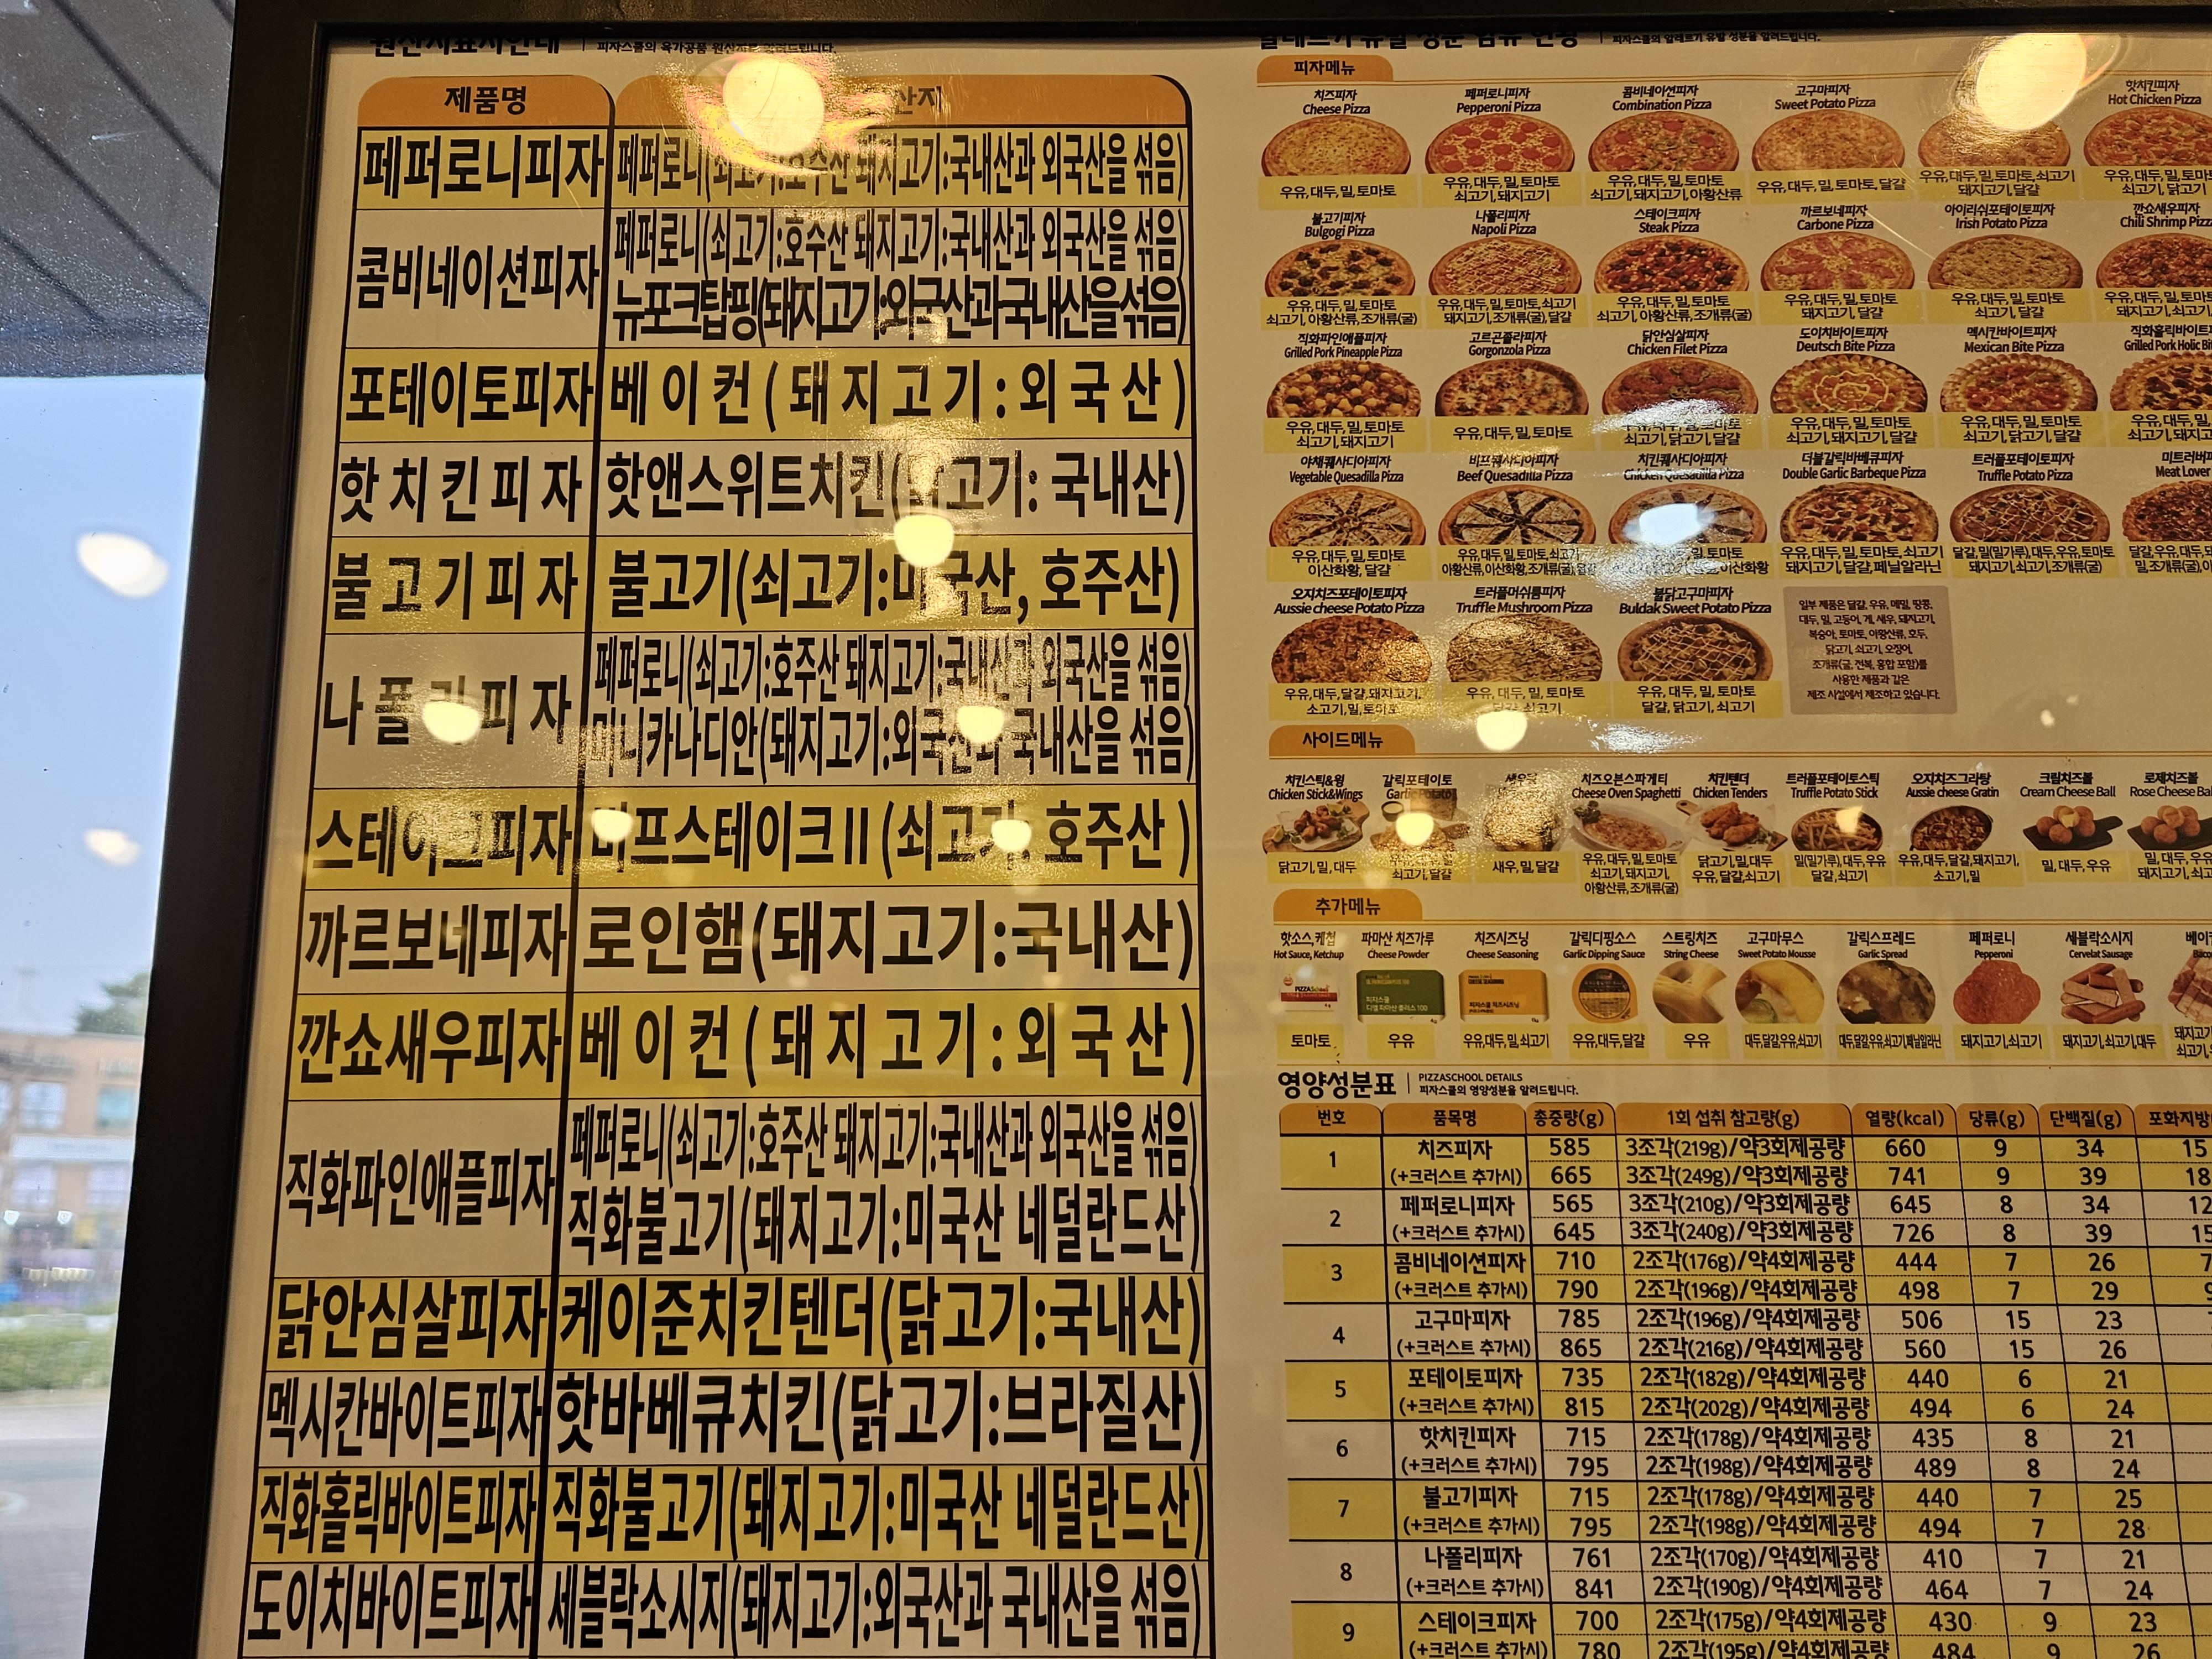 원산지표시안내
피자스쿨의 육가공품 원산지를 알려드립니다.
제품명
산지
페퍼로니피자
페퍼로니(쇠고기:호주산 돼지고기:국내산과 외국산을 섞음)
콤비네이션피자
페퍼로니(쇠고기:호주산 돼지고기:국내산과 외국산을 섞음)
뉴포크탑핑(돼지고기:외국산과국내산을섞음)
포테이토피자
베이컨(돼지고기:외국산)
핫치킨피자
핫앤스위트치킨(닭고기: 국내산)
불고기피자
불고기(쇠고기:미국산, 호주산)
나폴리피자
페퍼로니(쇠고기:호주산 돼지고기:국내산과 외국산을 섞음)
미니카나디안(돼지고기:외국산과 국내산을 섞음)
스테이크피자
비프스테이크II(쇠고기: 호주산)
까르보네피자
로인햄(돼지고기:국내산)
깐쇼새우피자
베이컨(돼지고기:외국산)
직화파인애플피자
페퍼로니(쇠고기:호주산 돼지고기:국내산과 외국산을 섞음)
직화불고기(돼지고기:미국산 네덜란드산)
닭안심살피자
케이준치킨텐더(닭고기:국내산)
멕시칸바이트피자
핫바베큐치킨(닭고기:브라질산)
직화홀릭바이트피자
직화불고기(돼지고기:미국산 네덜란드산)
도이치바이트피자
세블락소시지(돼지고기:외국산과 국내산을 섞음)
알레르기 유발 성분 함유 현황
피자스쿨의 알레르기 유발 성분을 알려드립니다.
피자메뉴
치즈피자
Cheese Pizza
우유, 대두, 밀, 토마토
페퍼로니피자
Pepperoni Pizza
우유, 대두, 밀, 토마토
쇠고기, 돼지고기
콤비네이션피자
Combination Pizza
우유, 대두, 밀, 토마토
쇠고기, 돼지고기, 아황산류
고구마피자
Sweet Potato Pizza
우유, 대두, 밀, 토마토, 달걀
우유, 대두, 밀, 토마토, 쇠고기
돼지고기, 달걀
핫치킨피자
Hot Chicken Pizza
우유, 대두, 밀, 토마
쇠고기, 닭고기
불고기피자
Bulgogi Pizza
우유, 대두, 밀, 토마토
쇠고기, 아황산류, 조개류(굴)
나폴리피자
Napoli Pizza
우유, 대두, 밀, 토마토, 쇠고기
돼지고기, 조개류(굴), 달걀
스테이크피자
Steak Pizza
우유, 대두, 밀, 토마토
쇠고기, 아황산류, 조개류(굴)
까르보네피자
Carbone Pizza
우유, 대두, 밀, 토마토
돼지고기, 달걀
아이리쉬포테이토피자
Irish Potato Pizza
우유, 대두, 밀, 토마토
돼지고기, 달걀
깐쇼새우피자
Chili Shrimp Pizz
우유, 대두, 밀, 토마
돼지고기, 쇠고기,
직화파인애플피자
Grilled Pork Pineapple Pizza
우유, 대두, 밀, 토마토
쇠고기, 돼지고기
고르곤졸라피자
Gorgonzola Pizza
우유, 대두, 밀, 토마토
닭안심살피자
Chicken Filet Pizza
우유, 대두, 밀, 토마토
쇠고기, 닭고기, 달걀
도이치바이트피자
Deutsch Bite Pizza
우유, 대두, 밀, 토마토
쇠고기, 돼지고기, 달걀
멕시칸바이트피자
Mexican Bite Pizza
우유, 대두, 밀, 토마토
쇠고기, 닭고기, 달걀
직화홀릭바이트피
Grilled Pork Holic Bit
우유, 대두, 밀, 토
쇠고기, 돼지고
야채퀘사디아피자
Vegetable Quesadilla Pizza
우유, 대두, 밀, 토마토
이산화황, 달걀
비프퀘사디아피자
Beef Quesadilla Pizza
우유, 대두, 밀, 토마토, 쇠고기
아황산류, 이산화황, 조개류(굴), 달걀
치킨퀘사디아피자
Chicken Quesadilla Pizza
밀, 토마토
이산화황
더블갈릭바베큐피자
Double Garlic Barbeque Pizza
우유, 대두, 밀, 토마토, 쇠고기
돼지고기, 달걀, 페닐알라닌
트러플포테이토피자
Truffle Potato Pizza
달걀, 밀(밀가루), 대두, 우유, 토마토
돼지고기, 쇠고기, 조개류(굴)
미트러버피
Meat Lover
달걀, 우유, 대두,
밀, 조개류(굴), 이
오지치즈포테이토피자
Aussie cheese Potato Pizza
우유, 대두, 달걀, 돼지고기,
소고기, 밀, 토마토
트러플머쉬룸피자
Truffle Mushroom Pizza
우유, 대두, 밀, 토마토
달걀, 쇠고기
불닭고구마피자
Buldak Sweet Potato Pizza
우유, 대두, 밀, 토마토
달걀, 닭고기, 쇠고기
일부 제품은 달걀, 우유, 메밀, 땅콩,
대두, 밀, 고등어, 게, 새우, 돼지고기,
복숭아, 토마토, 아황산류, 호두,
닭고기, 쇠고기, 오징어,
조개류(굴, 전복, 홍합 포함)를
사용한 제품과 같은
제조 시설에서 제조하고 있습니다.
사이드메뉴
치킨스틱&윙
Chicken Stick&Wings
닭고기, 밀, 대두
갈릭포테이토
Garlic Potato
우유, 대두, 밀
쇠고기, 달걀
새우, 밀, 달걀
치즈오븐스파게티
Cheese Oven Spaghetti
우유, 대두, 밀, 토마토
쇠고기, 돼지고기,
아황산류, 조개류(굴)
치킨텐더
Chicken Tenders
닭고기, 밀, 대두
우유, 달걀, 쇠고기
트러플포테이토스틱
Truffle Potato Stick
밀(밀가루), 대두, 우유
달걀, 쇠고기
오지치즈그라탕
Aussie cheese Gratin
우유, 대두, 달걀, 돼지고기,
소고기, 밀
크림치즈볼
Cream Cheese Ball
밀, 대두, 우유
로제치즈볼
Rose Cheese Bal
밀, 대두, 우유
돼지고기, 쇠
추가메뉴
핫소스, 케첩
Hot Sauce, Ketchup
토마토
파마산 치즈가루
Cheese Powder
우유
치즈시즈닝
Cheese Seasoning
우유, 대두, 밀, 쇠고기
갈릭디핑소스
Garlic Dipping Sauce
우유, 대두, 달걀
스트링치즈
String Cheese
우유
고구마무스
Sweet Potato Mousse
대두, 달걀, 우유, 쇠고기
갈릭스프레드
Garlic Spread
대두, 달걀, 우유, 쇠고기, 페닐알라닌
페퍼로니
Pepperoni
돼지고기, 쇠고기
세블락소시지
Cervelat Sausage
돼지고기, 쇠고기, 대두
베이
Baco
돼지고기
쇠고기, 우
영양성분표
PIZZASCHOOL DETAILS
피자스쿨의 영양성분을 알려드립니다.
번호 품목명 총중량(g) 1회 섭취 참고량(g) 열량(kcal) 당류(g) 단백질(g) 포화지방
1 치즈피자 585 3조각(219g)/약3회제공량 660 9 34 15
(+크러스트 추가시) 665 3조각(249g)/약3회제공량 741 9 39 18
2 페퍼로니피자 565 3조각(210g)/약3회제공량 645 8 34 12
(+크러스트 추가시) 645 3조각(240g)/약3회제공량 726 8 39 15
3 콤비네이션피자 710 2조각(176g)/약4회제공량 444 7 26 7
(+크러스트 추가시) 790 2조각(196g)/약4회제공량 498 7 29
4 고구마피자 785 2조각(196g)/약4회제공량 506 15 23
(+크러스트 추가시) 865 2조각(216g)/약4회제공량 560 15 26
5 포테이토피자 735 2조각(182g)/약4회제공량 440 6 21
(+크러스트 추가시) 815 2조각(202g)/약4회제공량 494 6 24
6 핫치킨피자 715 2조각(178g)/약4회제공량 435 8 21
(+크러스트 추가시) 795 2조각(198g)/약4회제공량 489 8 24
7 불고기피자 715 2조각(178g)/약4회제공량 440 7 25
(+크러스트 추가시) 795 2조각(198g)/약4회제공량 494 7 28
8 나폴리피자 761 2조각(170g)/약4회제공량 410 7 21
(+크러스트 추가시) 841 2조각(190g)/약4회제공량 464 7 24
9 스테이크피자 700 2조각(175g)/약4회제공량 430 9 23
(+크러스트 추가시) 780 2조각(195g)/약4회제공량 484 9 26